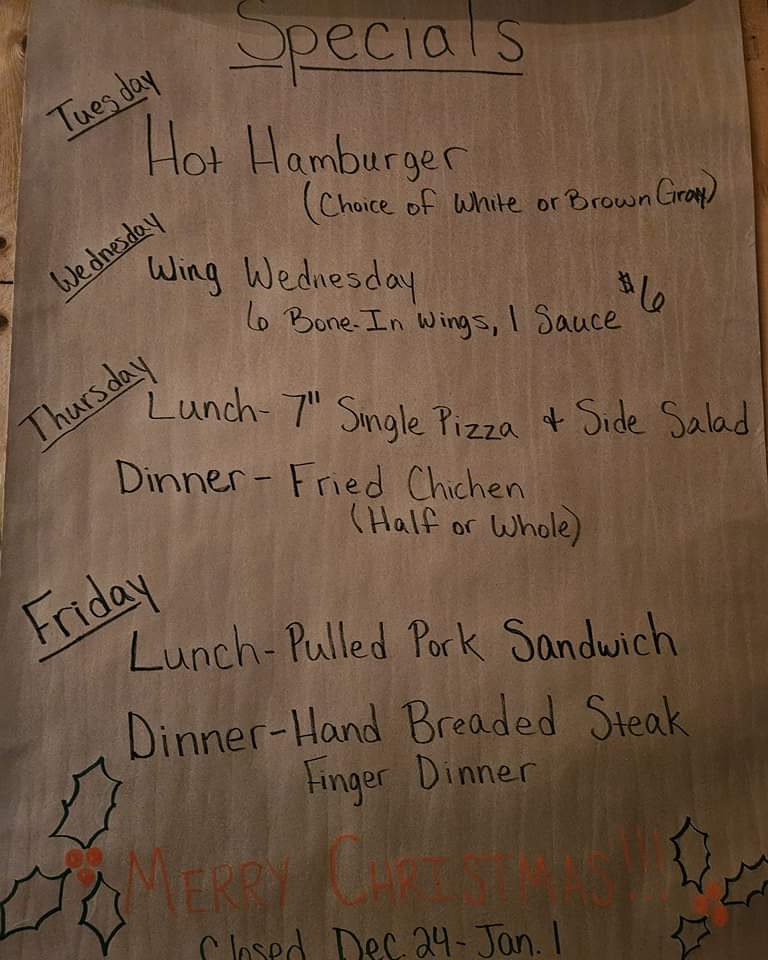 Specials
Tuesday
Hot Hamburger
(Choice of White or Brown Gravy)
Wednesday
Wing Wednesday
6 Bone-In Wings, 1 Sauce $6
Thursday
Lunch- 7" Single Pizza + Side Salad
Dinner- Fried Chichen
(Half or Whole)
Friday
Lunch- Pulled Pork Sandwich
Dinner-Hand Breaded Steak
Finger Dinner
MERRY CHRISTMAS!!!
Closed Dec. 24- Jan. 1